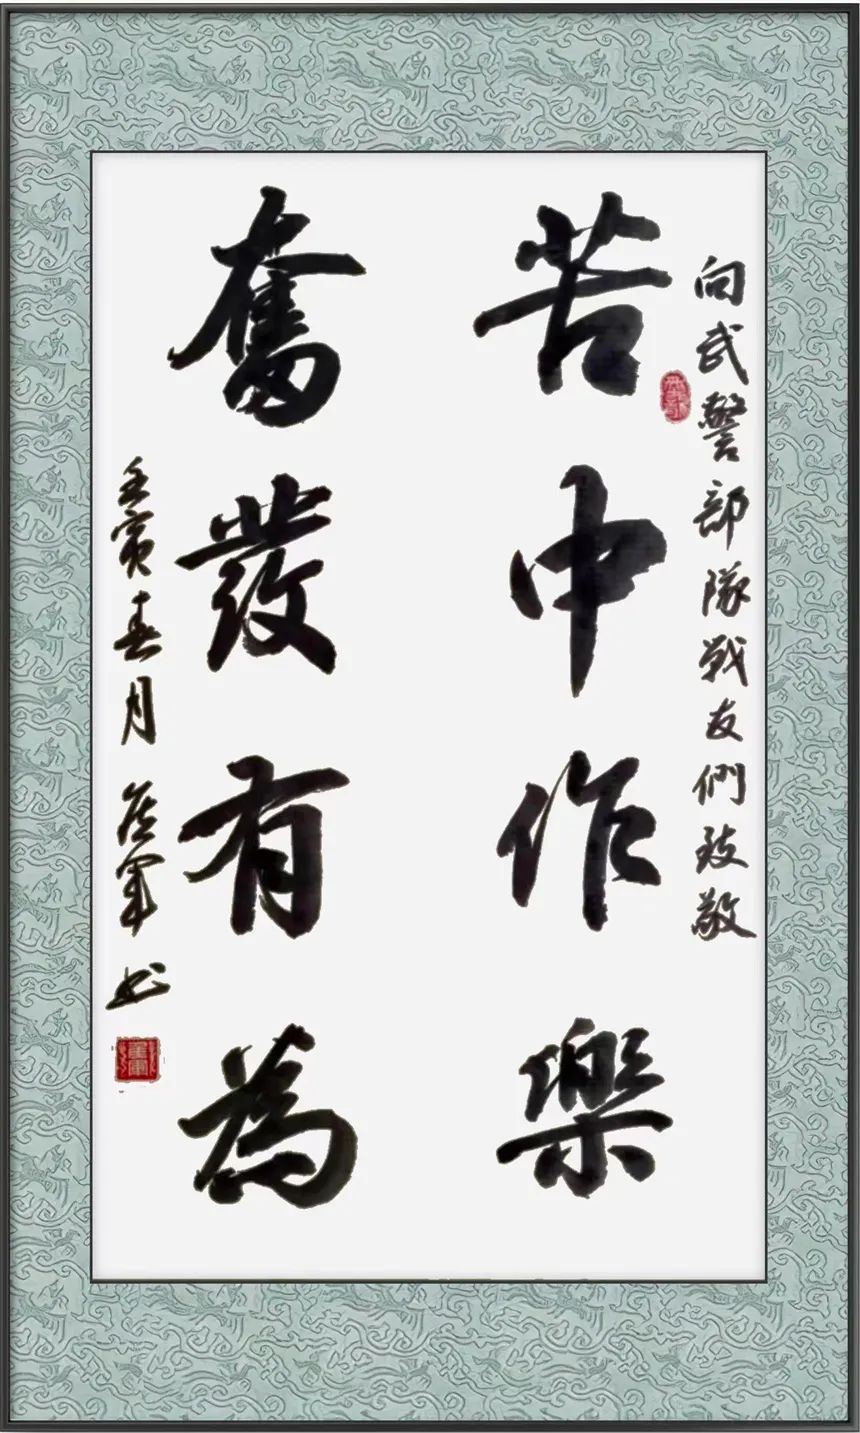 向武警部隊戰友們致敬
苦中作樂
奮發有為
壬寅春月 軍書